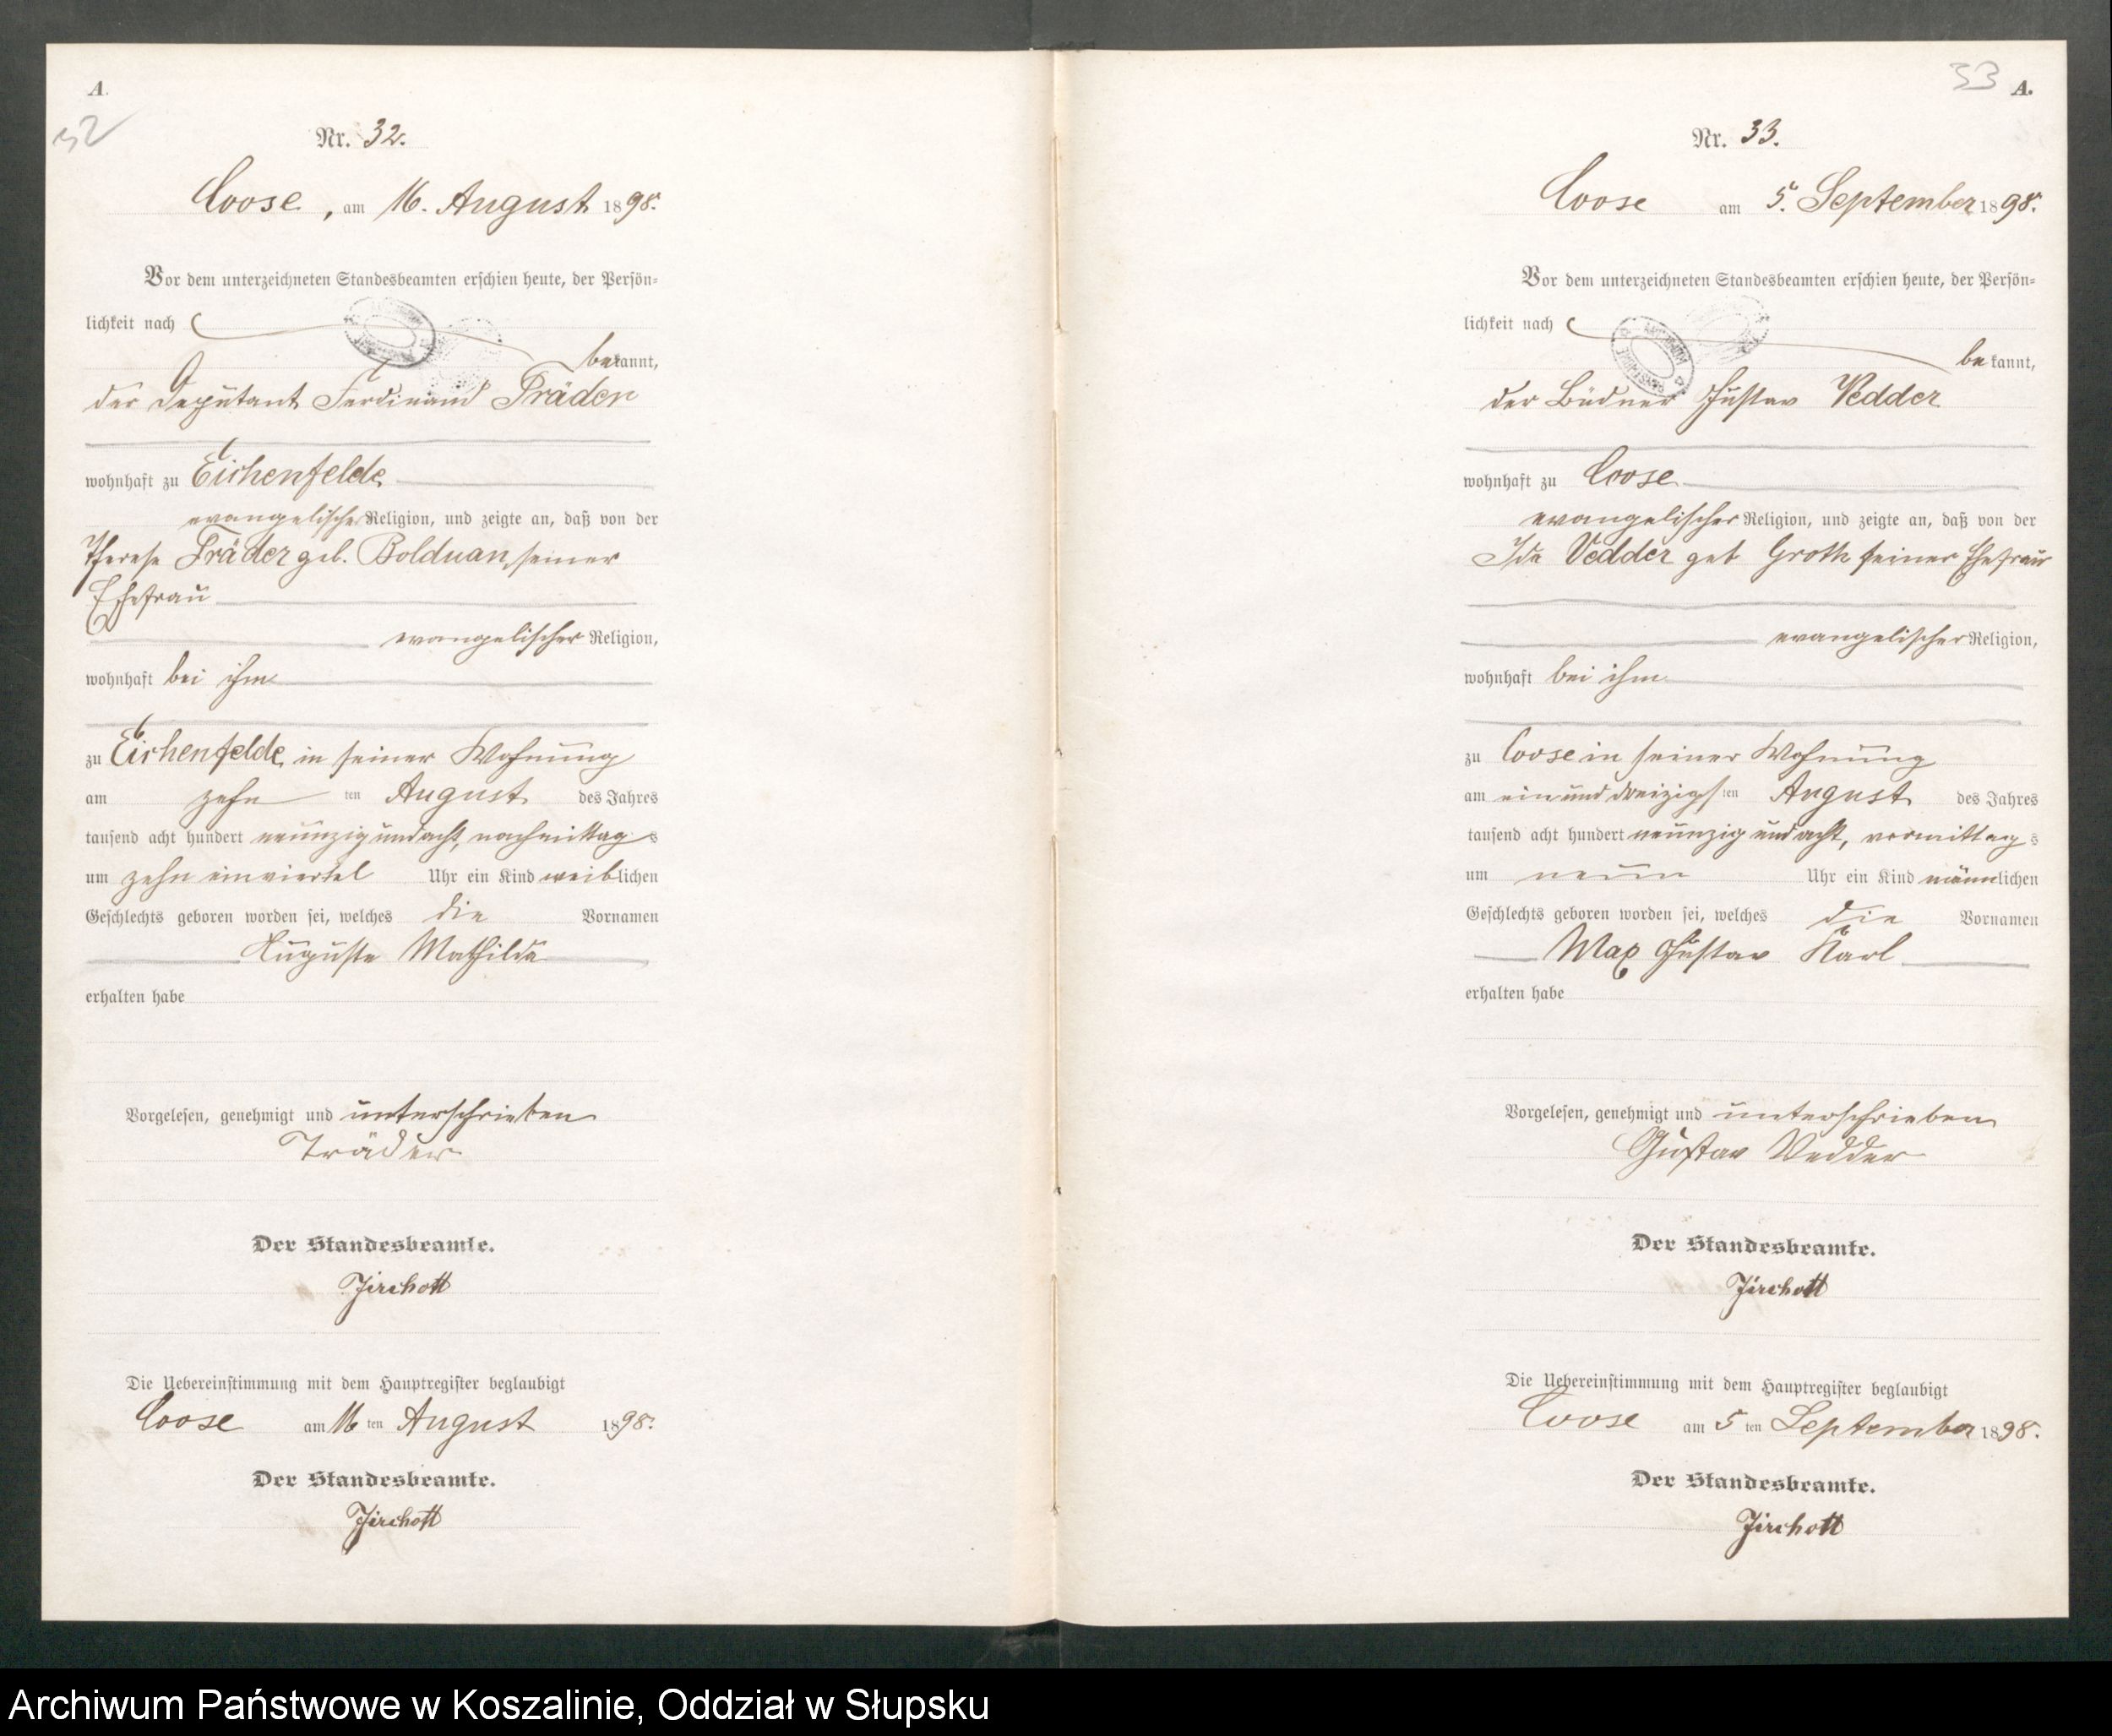 A.
32
Nr. 32.
Coose, am 16. August 1898.
Vor dem unterzeichneten Standesbeamten erschien heute, der Persön-
lichkeit nach
bekannt,
der Deputant Ferdinand Träder
wohnhaft zu Eichenfelde
evangelischer Religion, und zeigte an, daß von der
Therese Träder geb. Bolduan, seiner
Ehefrau
evangelischer Religion,
wohnhaft bei ihm
zu Eichenfelde in seiner Wohnung
am zehnten August des Jahres
tausend acht hundert neunzig und acht, nachmittags
um zehn einviertel Uhr ein Kind weiblichen
Geschlechts geboren worden sei, welches die Vornamen
Auguste Mathilde
erhalten habe
Vorgelesen, genehmigt und unterschrieben
Träder
Der Standesbeamte.
Jirchott
Die Uebereinstimmung mit dem Hauptregister beglaubigt
Coose am 16 ten August 1898.
Der Standesbeamte.
Jirchott
33 A.
Nr. 33.
Coose am 5. September 1898.
Vor dem unterzeichneten Standesbeamten erschien heute, der Persön-
lichkeit nach
bekannt,
der Büdner Gustav Vedder
wohnhaft zu Coose
evangelischer Religion, und zeigte an, daß von der
Ida Vedder geb Groth seiner Ehefrau
evangelischer Religion,
wohnhaft bei ihm
zu Coose in seiner Wohnung
am ein und dreizigsten August des Jahres
tausend acht hundert neunzig und acht, vormittags
um neun Uhr ein Kind männlichen
Geschlechts geboren worden sei, welches die Vornamen
Max Gustav Karl
erhalten habe
Vorgelesen, genehmigt und unterschrieben
Gustav Vedder
Der Standesbeamte.
Jirchott
Die Uebereinstimmung mit dem Hauptregister beglaubigt
Coose am 5 ten September 1898.
Der Standesbeamte.
Jirchott
Archiwum Państwowe w Koszalinie, Oddział w Słupsku